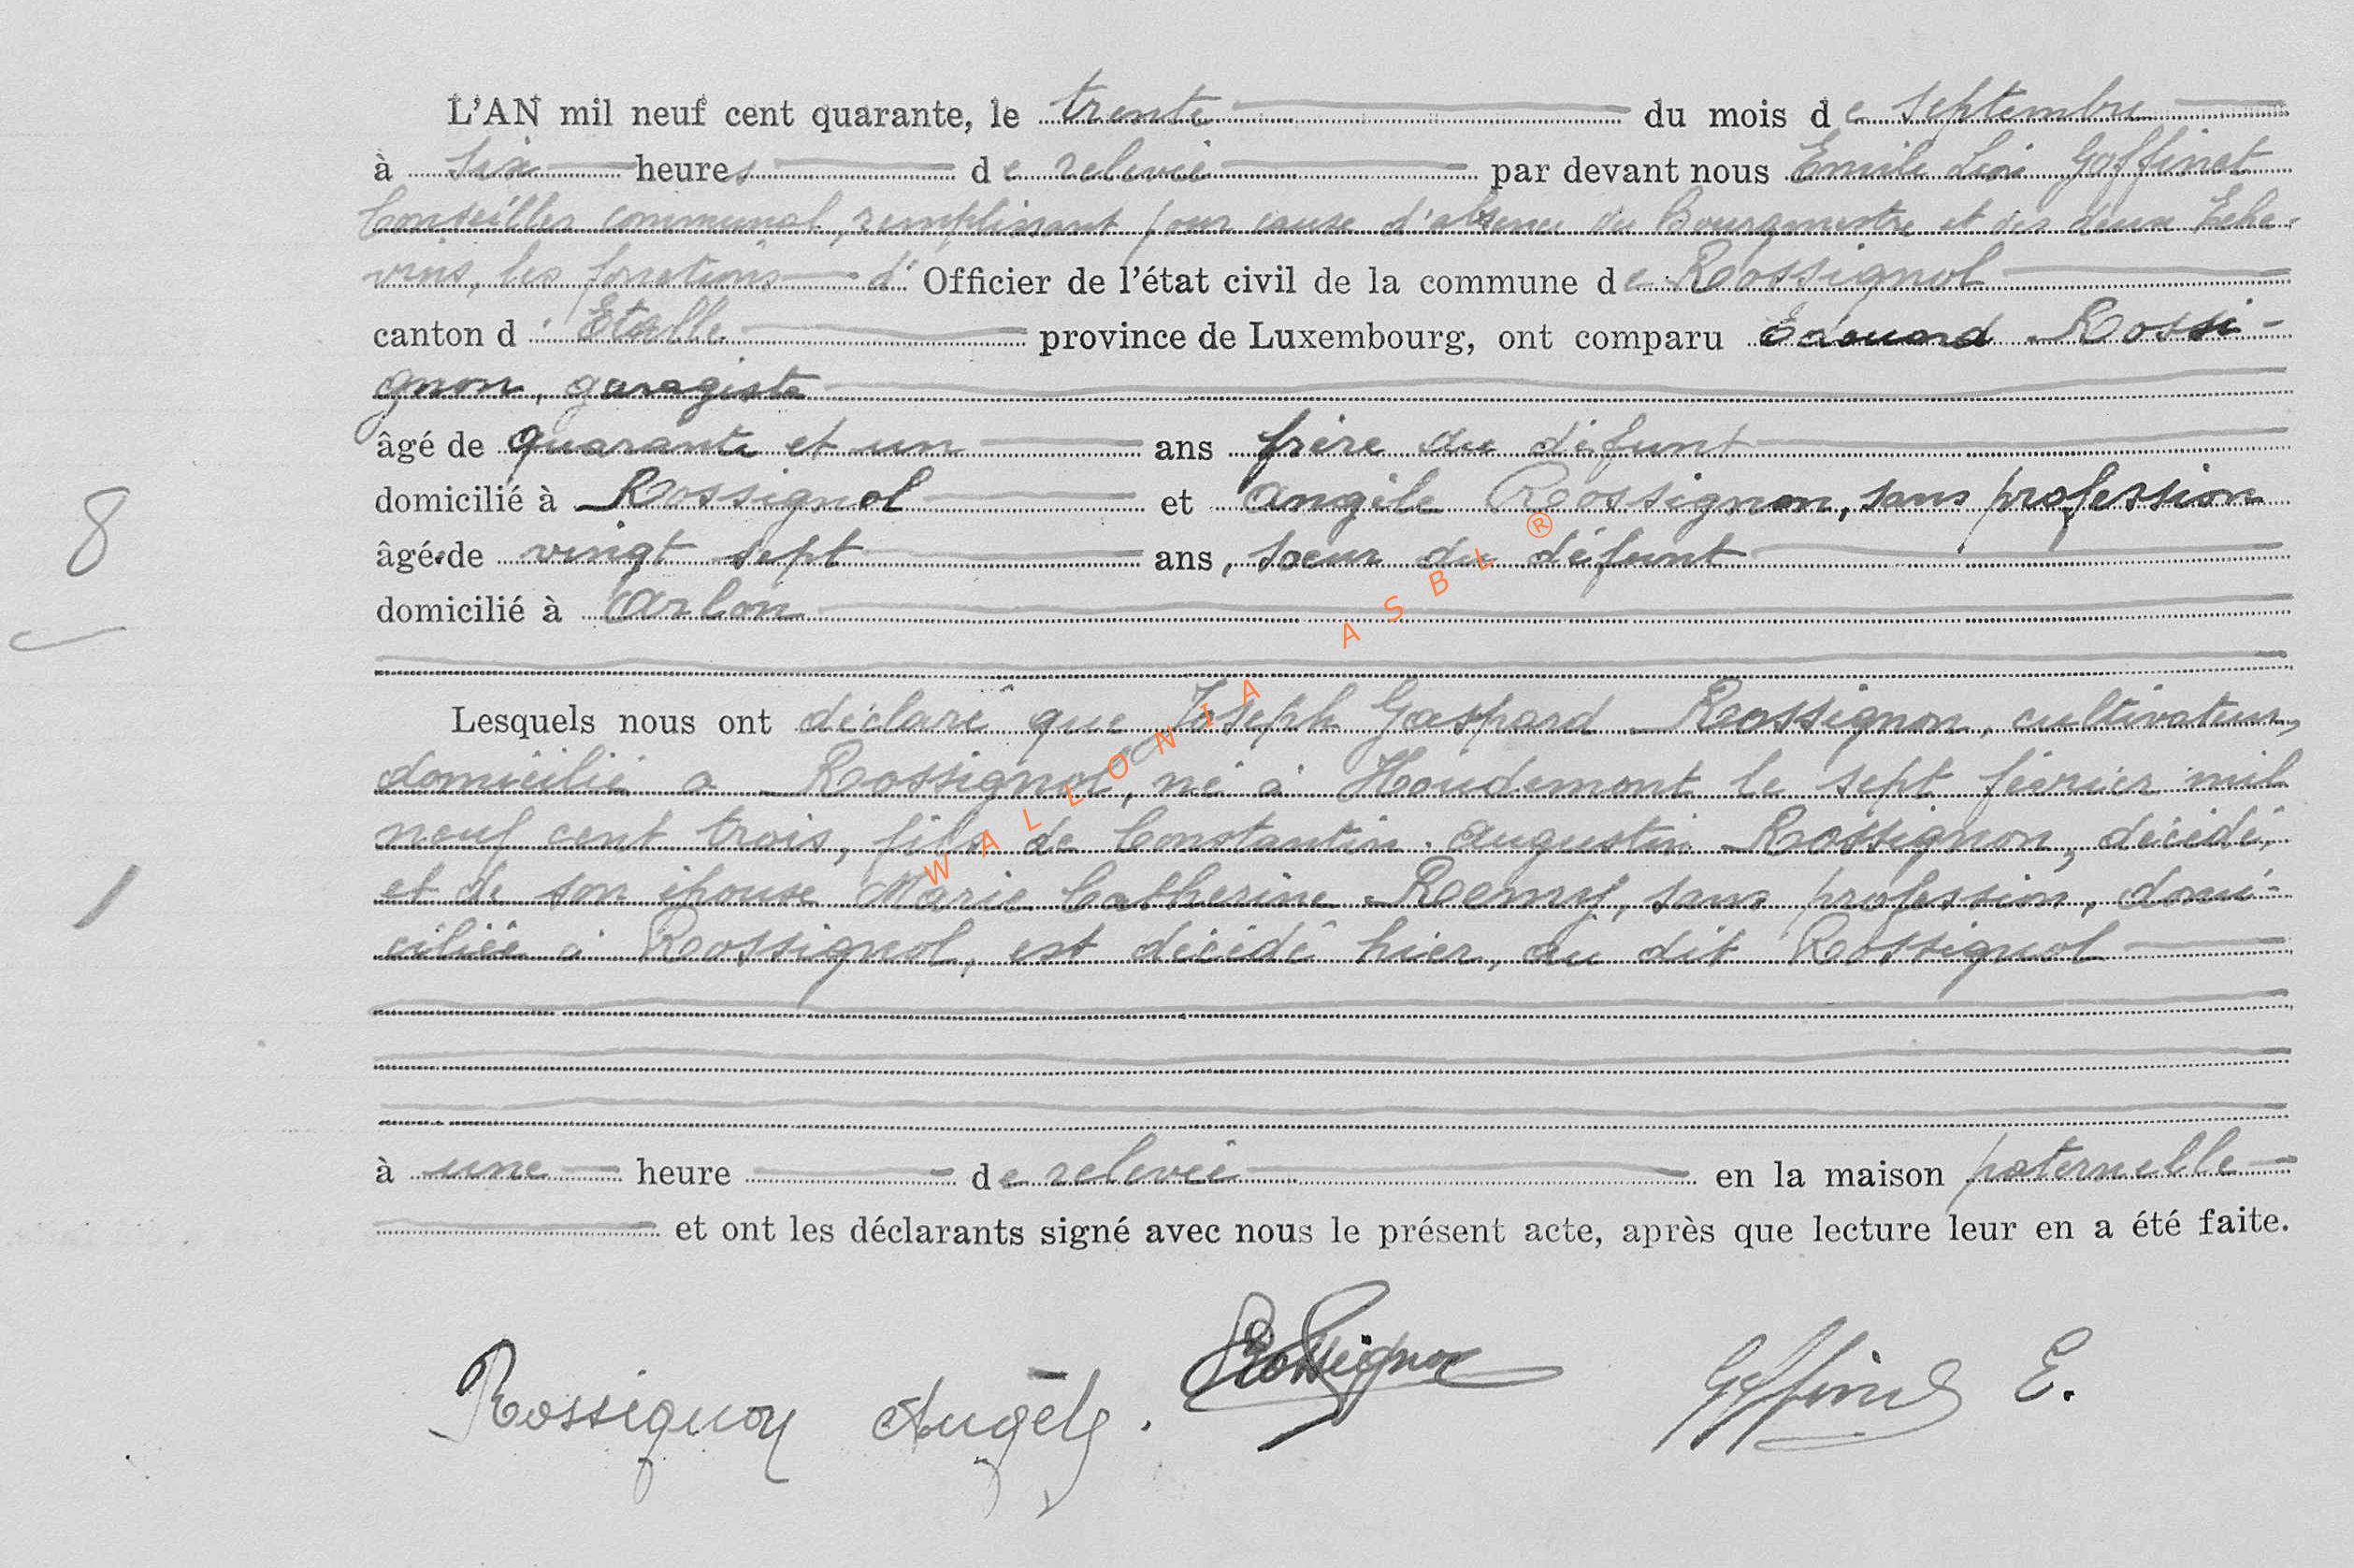 L'AN mil neuf cent quarante, le trente du mois de septembre
à six heures de relevée par devant nous Emile Léon Goffinet
Conseiller communal, remplissant pour cause d'absence du Bourgmestre et des deux Eche-
vins, les fonctions d' Officier de l'état civil de la commune de Rossignol
canton d'Etalle province de Luxembourg, ont comparu Edouard Rossi-
gnon, garagiste
âgé de quarante et un ans frère du défunt
8
domicilié à Rossignol et Angèle Rossignon, sans profession
âgé.de vingt sept ans, soeur du défunt
domicilié à Arlon
Lesquels nous ont déclaré que Joseph Gaspard Rossignon, cultivateur,
domicilié à Rossignol, né à Houdemont le sept février mil
neuf cent trois, fils de Constantin Augustin Rossignon, décédé,
1
et de son épouse Marie Catherine Remy, sans profession, domi-
ciliée à Rossignol, est décédé hier, au dit Rossignol
à une heure de relevée en la maison paternelle
et ont les déclarants signé avec nous le présent acte, après que lecture leur en a été faite.
Rossignon Angèle. Rossignon Goffinet E.
WALLONIA ASBL ®